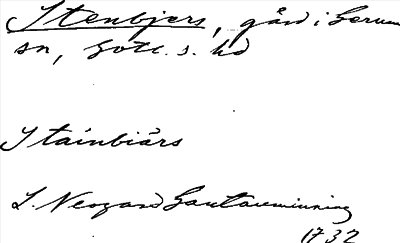 Stenbjers, gård i Gerum
sn, Gotl. s. hd
Stainbiärs
L. Neogard Gautaminning
1732